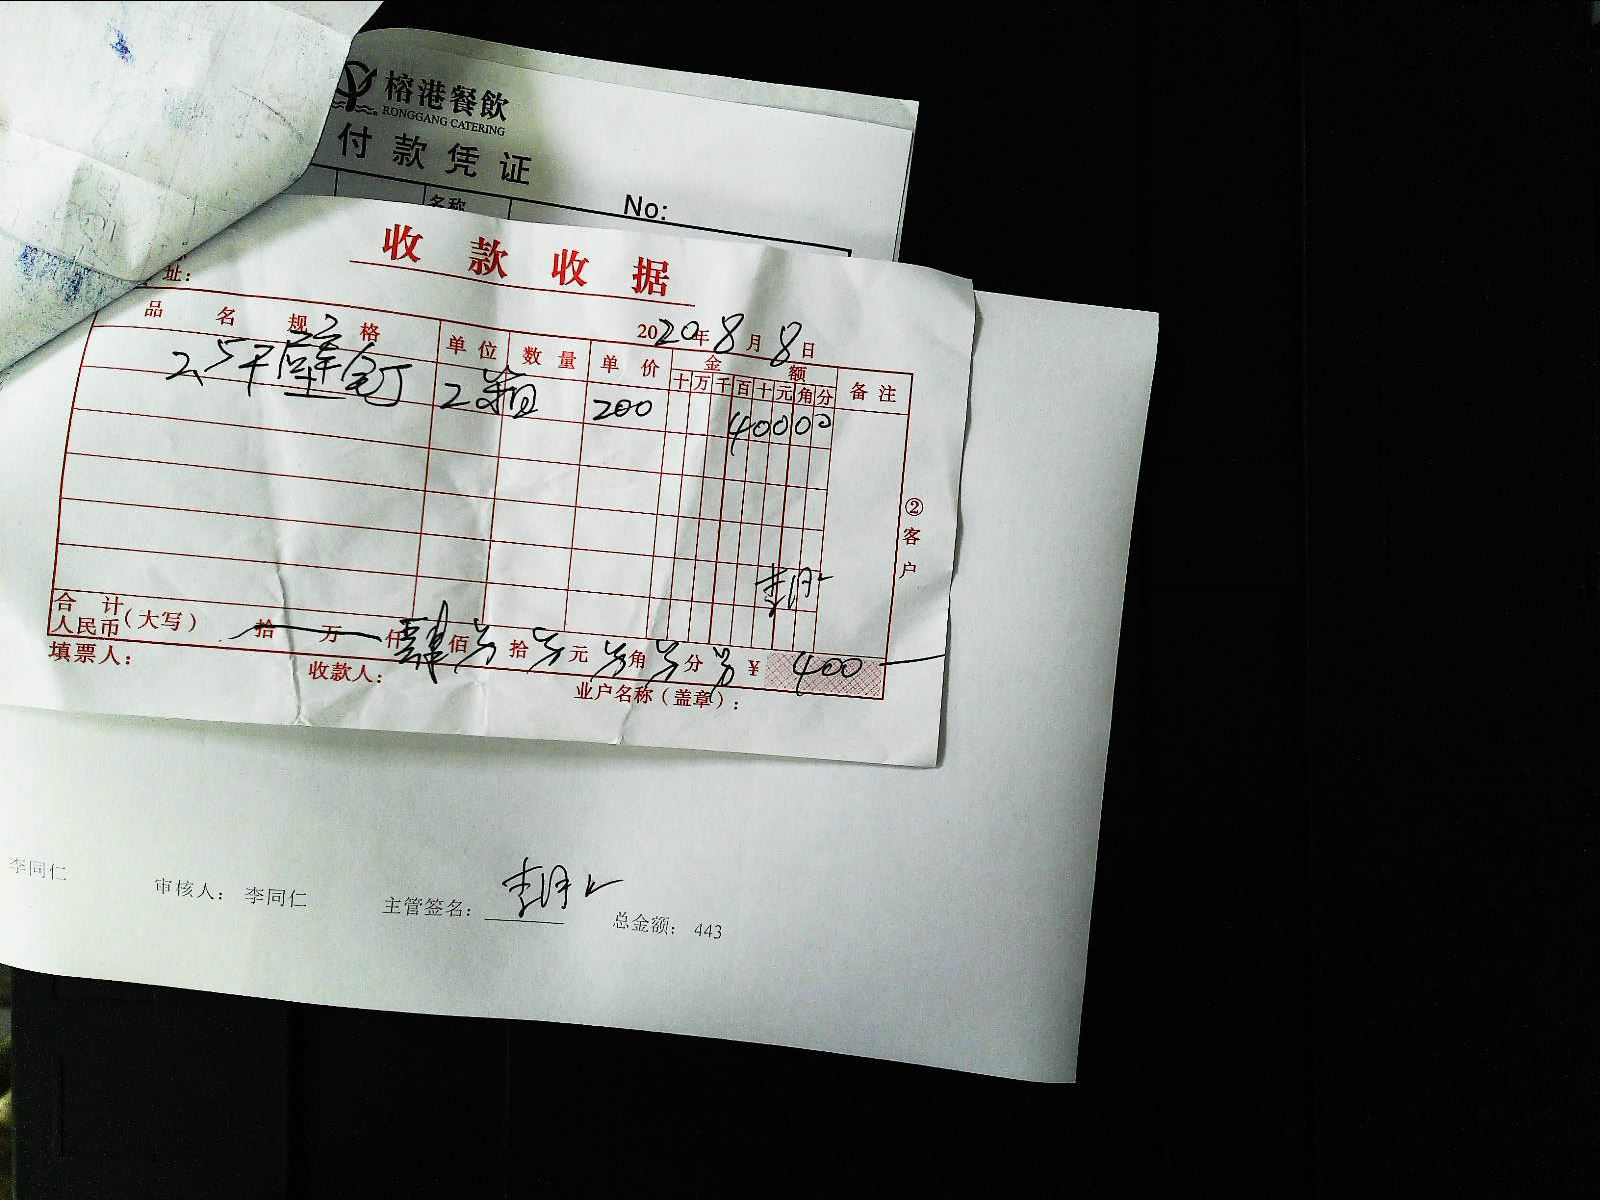 榕港餐飲
RONGGANG CATERING
付款凭证
名称
No:
收款收据
址：
2020年8月8日
品名规格 单位 数量 单价 金额 备注
十万千百十元角分
2.5干壁钉 2箱 200 40000
②客户
合计人民币（大写） 拾 万 仟 肆佰 拾 元 角 分 ¥ 400
填票人： 收款人： 业户名称（盖章）：
李同仁 审核人： 李同仁 主管签名： 总金额： 443